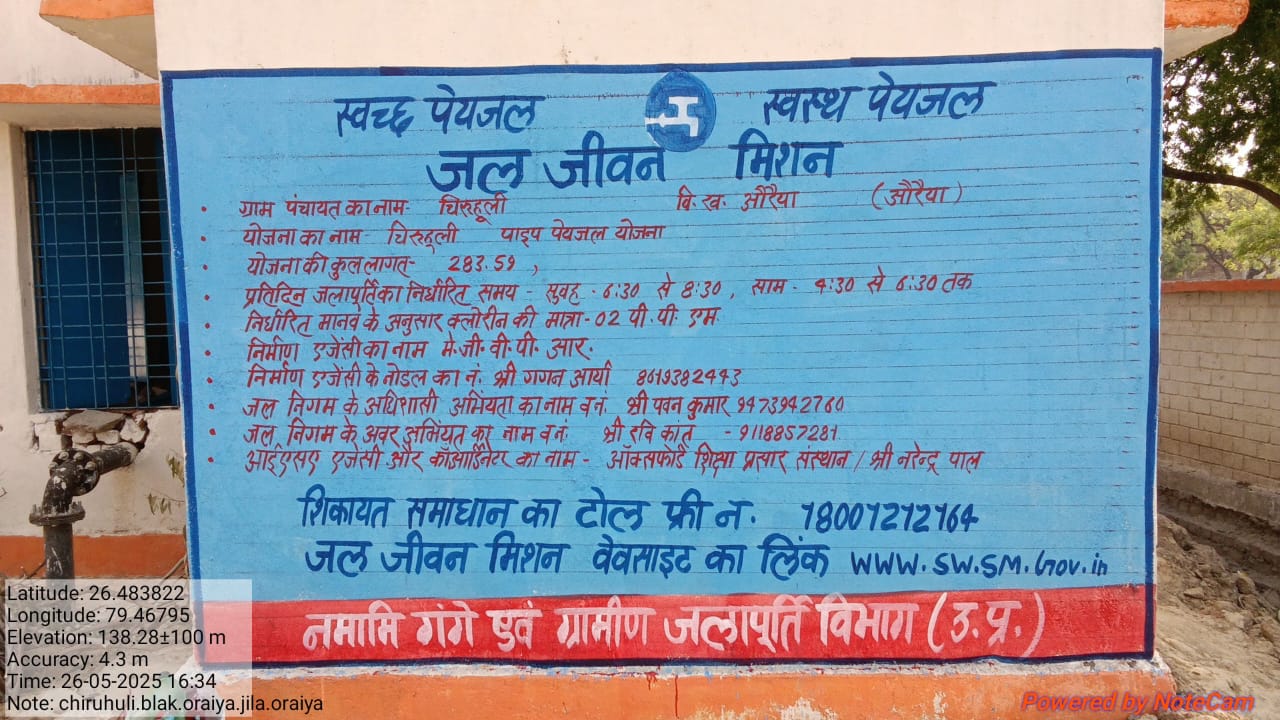 स्वच्छ पेयजल स्वस्थ पेयजल
जल जीवन मिशन
• ग्राम पंचायत का नाम- चिरुहूली वि.ख. औरैया (औरैया)
• योजना का नाम- चिरुहूली पाइप पेयजल योजना
• योजना की कुल लागत- 283.59,
• प्रतिदिन जलापूर्ति का निर्धारित समय - सुवह - 6:30 से 8:30, साम - 4:30 से 6:30 तक
• निर्धारित मानव के अनुसार क्लोरीन की मात्रा - 02 पी. पी. एम.
• निर्माण एजेंसी का नाम मे. जी. वी. पी. आर.
• निर्माण एजेंसी के नोडल का नं. श्री गगन आर्या 8619382443
• जल निगम के अधिशासी अभियंता का नाम व नं. श्री पवन कुमार 9473942760
• जल निगम के अवर अभियंत का नाम व नं. श्री रवि कांत - 9118857281
• आईएसए एजेंसी और कॉआर्डिनेटर का नाम - ऑक्सफोर्ड शिक्षा प्रसार संस्थान / श्री नरेन्द्र पाल
शिकायत समाधान का टोल फ्री न. 18001212164
जल जीवन मिशन वेवसाइट का लिंक www.sw.sm.Gov.in
नमामि गंगे एवं ग्रामीण जलापूर्ति विभाग (उ.प्र.)
Latitude: 26.483822
Longitude: 79.46795
Elevation: 138.28±100 m
Accuracy: 4.3 m
Time: 26-05-2025 16:34
Note: chiruhuli.blak.oraiya.jila.oraiya
Powered by NoteCam